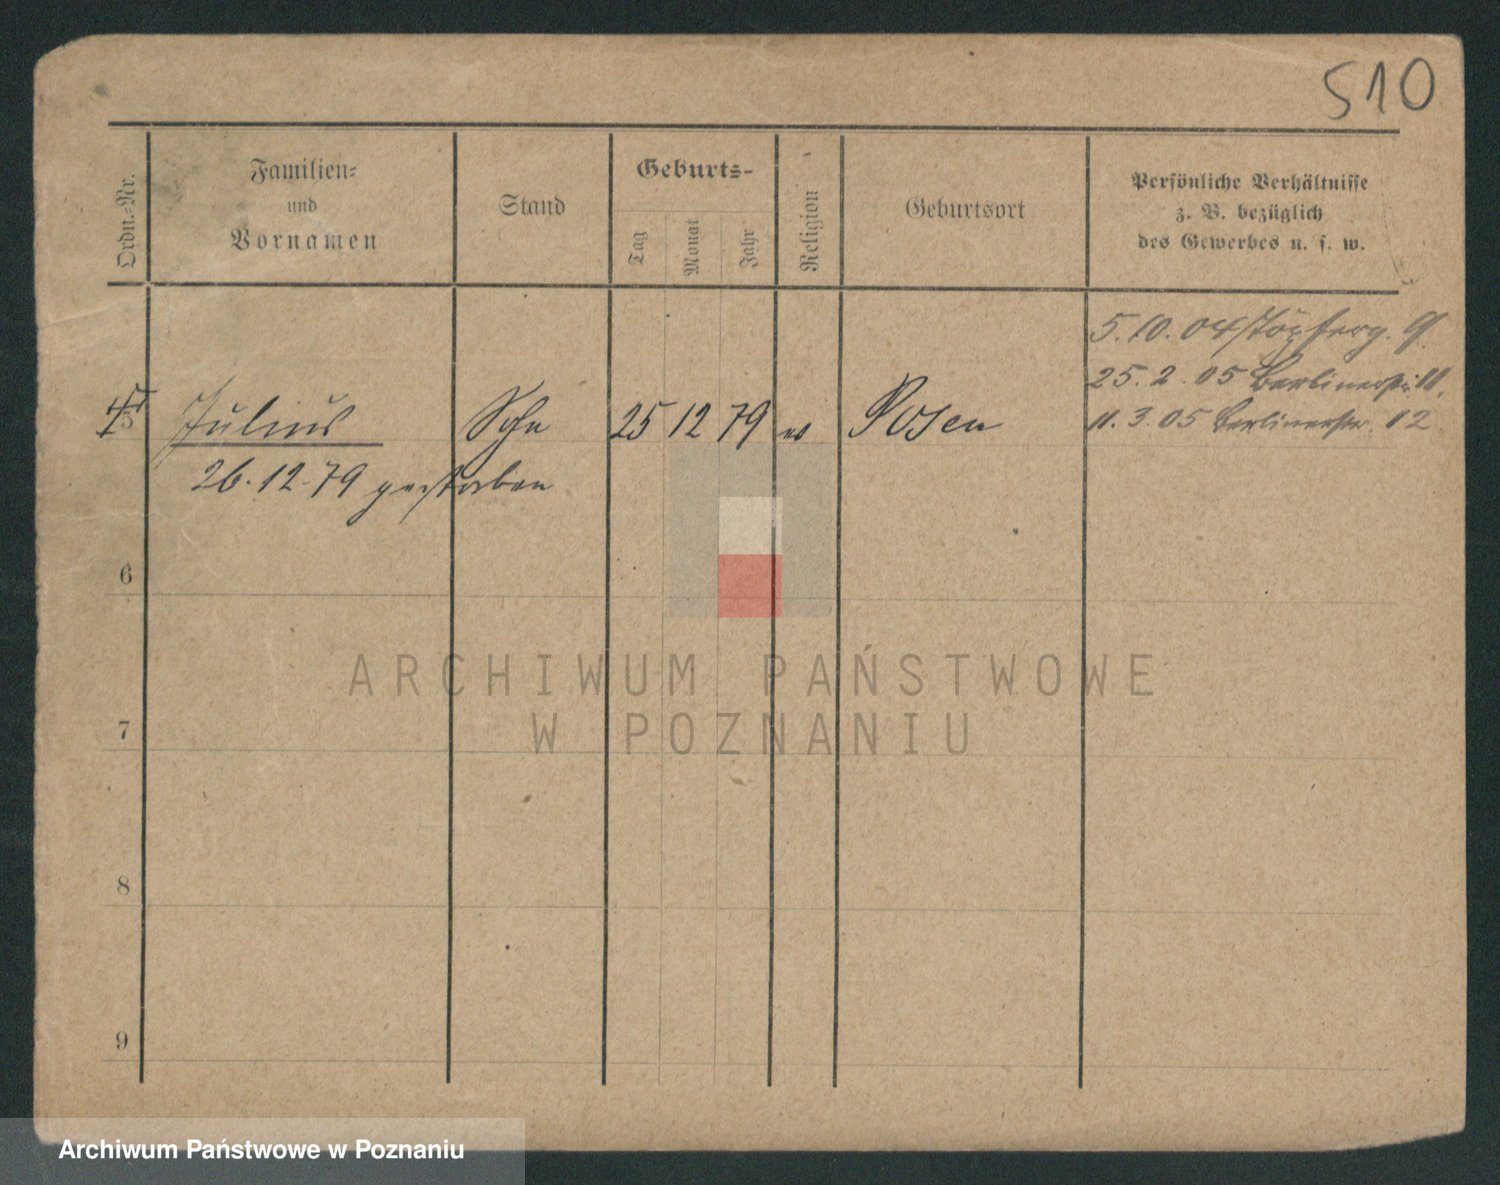 510
Ordn.-Nr.
Familien-
und
Vornamen
Stand
Geburts-
Tag
Monat
Jahr
Religion
Geburtsort
Persönliche Verhältnisse
z. B. bezüglich
des Gewerbes u. s. w.
5.10.04 Töpferg. 9.
25.2.05 Berlinerstr. 11.
11.3.05 Berlinerstr. 12
5 Julius Sohn 25 12 79 Posen
26.12.79 gestorben
6
7
8
9
ARCHIWUM PAŃSTWOWE
W POZNANIU
Archiwum Państwowe w Poznaniu